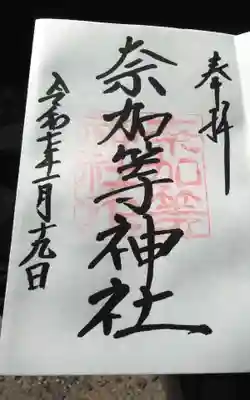 奉拝
奈加等神社
令和七年二月十九日